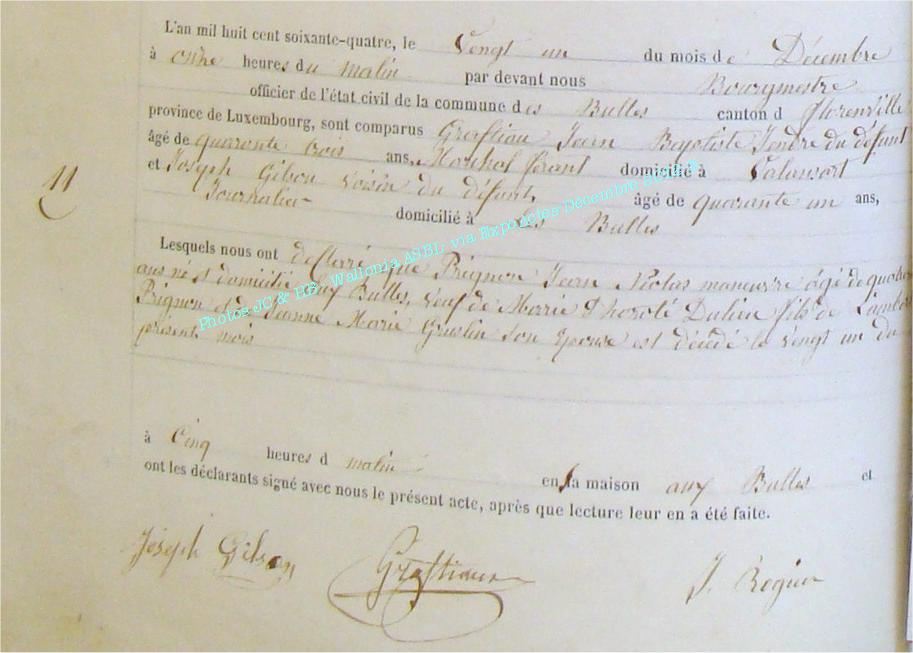 L'an mil huit cent soixante-quatre, le Vengt un du mois de Décembre
à onze heures du matin par devant nous Bourgmestre
officier de l'état civil de la commune des Bulles canton d Florenville
province de Luxembourg, sont comparus Grostiaux Jean Baptiste Jendre du défunt
âgé de quarante trois ans, domicilié à
11
et Joseph Gilson Voisin du défunt, âgé de quarante un ans,
Journalier domicilié à des Bulles
Lesquels nous ont déclarré que Prignon Jean Nicolas maneuvre âgé de
ans né et domicilié aux Bulles, Veuf de Marie fils de
Prignon et de Jeanne Marie son Epouse est décédé le vengt un du
présent mois
à Cinq heures d matin en sa maison aux Bulles et
ont les déclarants signé avec nous le présent acte, après que lecture leur en a été faite.
Joseph Gilson J. Rogier
Photos JC & HB, Wallonia ASBL, via Expoactes Décembre